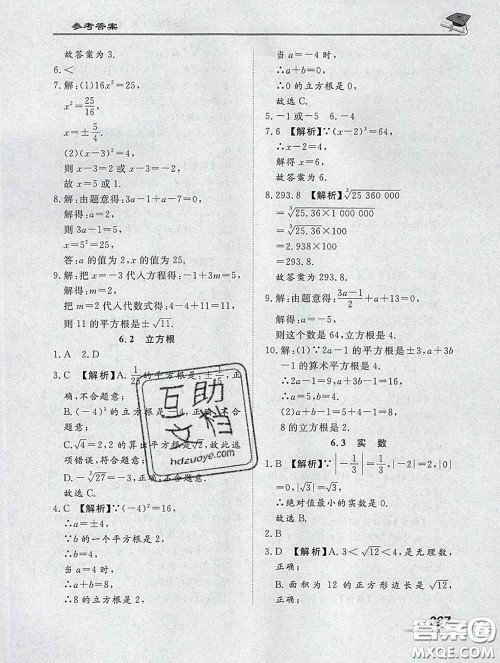 参考答案
故答案为 3.
6. <
7. 解:(1)16x²=25,
x²=25/16,
x=±5/4.
(2)(x-3)²=4,
则 x-3=2 或 x-3=-2,
故 x=5 或 1.
8. 解:由题意得:3a-1+a-7=0,
解得:a=2,
则 3a-1=5,
x=5²=25,
答:a 的值为 2,x 的值为 25.
9. 解:把 x=-3 代入方程得:-1+3m=5,
解得:m=2,
把 m=2 代入代数式得:4-4+11=11,
则 11 的平方根是±√11.
6.2 立方根
1. A 2. D
3. C 【解析】A.
的平方根是:±
,正
确,不合题意;
B.(-4)²
不合题意;
C.√4=2,2 的算出平方根是√2,故此选
项错误,符合题意;
D.
=-3,正确,不合题意.
故选 C.
4. C 【解析】∵(-4)²=16,
∴a=±4,
∵b 的一个平方根是 2,
∴b=4,
当 a=4 时,
∴a+b=8,
∴8 的立方根是 2,
当 a=-4 时,
∴a+b=0,
∴0 的立方根是 0,
故选 C.
5. -1 或 -5 6. -4
7. 6 【解析】∵(x-2)³=64,
∴x-2=4,
解得 x=6.
故答案为 6.
8. 293.8 【解析】∛25 360 000
=∛25.36×1 000 000
=∛25.36×100
=2.938×100
=293.8.
故答案为:293.8.
9. 解:由题意得:(3a-1)/2+a+13=0,
解得:a=-5,
则这个数是 64,立方根是 4.
10. 解:(1)∵2a-1 的平方根是±3,a+3b
-1 的算术平方根是 4,
∴2a-1=9,a+3b-1=16,
解得:a=5,b=4,
a+50b=
8 的立方根是 2.
6.3 实 数
1. B 【解析】∵|-1/3|=1/3,|-2|=2,|0|
=0,|√3|=√3,
∴绝对值最小的实数是 0.
故选 B.
2. B
3. D 【解析】A. 3<√12<4,是无理数,
正确;
B. 面积为 12 的正方形边长是√12,
正确;
互助
文档
hdzuoye.com
答案圈
MXQE.COM